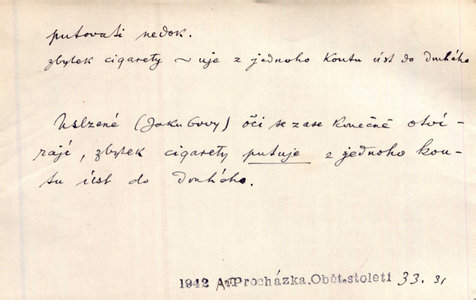 putovati nedok.
zbytek cigarety ~uje z jednoho koutu úst do druhého
Uslzené (Jakubovy) oči se zase konečně otví-
rají, zbytek cigarety putuje z jednoho kou-
tu úst do druhého.
1942 A. Procházka. Oběť. stoleti 33. 31